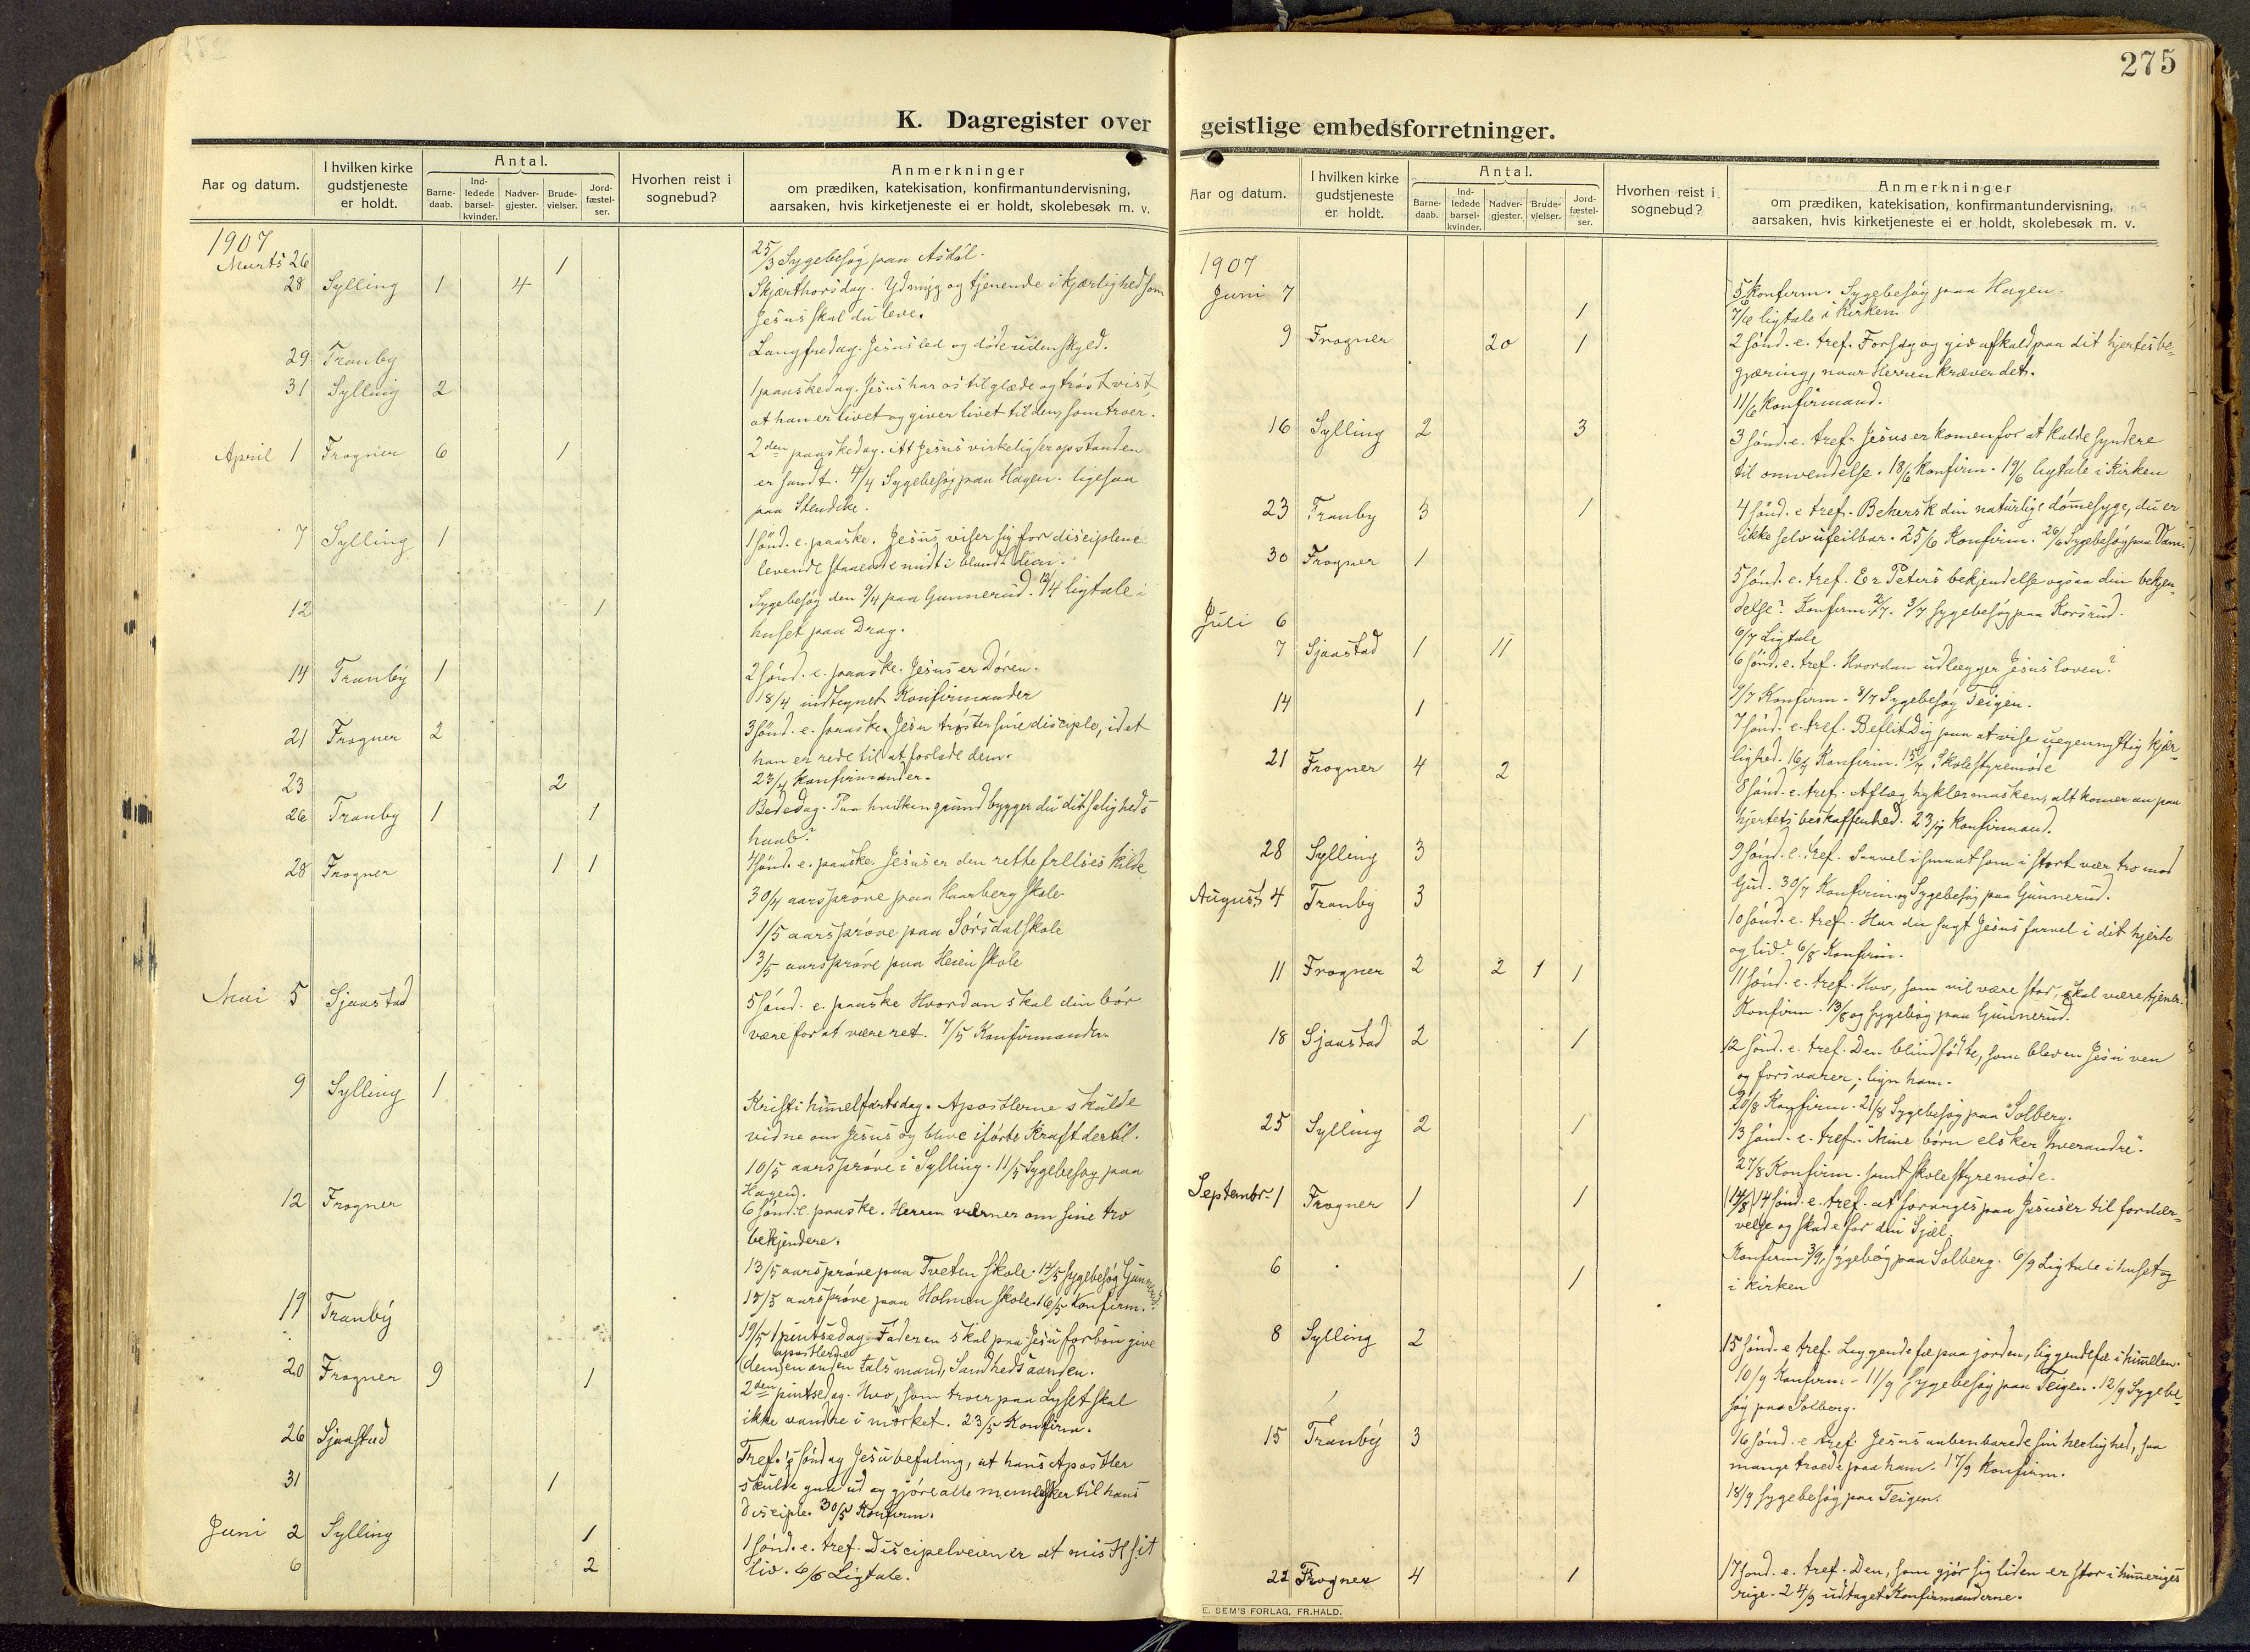 275
K. Dagregister over geistlige embedsforretninger.
Aar og datum.
I hvilken kirke gudstjeneste er holdt.
Antal.
Barnedaab.
Indledede barselkvinder.
Nadvergjester.
Brudevielser.
Jordfæstelser.
Hvorhen reist i sognebud?
Anmerkninger
om prædiken, katekisation, konfirmantundervisning,
aarsaken, hvis kirketjeneste ei er holdt, skolebesøk m. v.
1907
Marts 26 1 25/3 Sygebesøg paa Asdøl.
28 Sylling 1 4 Skjærthorsdag. Ydmyg og tjenende i kjærlighed som
Jesus skal du leve.
29 Tranby Langfredag. Jesus led og døde uden skyld.
31 Sylling 2 1 paaskedag. Jesus har os til glæde og trøst vist,
at han er livet og giver livet til den, som troer.
April 1 Frogner 6 1 2den paaskedag. At Jesus virkelig er opstanden
er sandt. 4/4 Sygebesøg paa Hagen. ligesaa
paa Stendike.
7 Sylling 1 1 sønd. e. paaske. Jesus viser sig for disciplene
levende staaende midt i blandt dem.
Sygebesøg den 9/4 paa Gunnerud. 12/4 ligtale i
12 1 huset paa Drag.
14 Tranby 1 2 sønd. e. paaske. Jesus er Døren.
18/4 indtegnet Konfirmander
21 Frogner 2 3 sønd. e. paaske. Jesu trøster sine disciple, idet
han er rede til at forlade dem.
23 2 23/4 Konfirmander.
26 Tranby 1 1 Bededag. Paa hvilken grund bygger du dit saligheds
haab?
28 Frogner 1 1 4 sønd. e. paaske. Jesus er den rette frelses kilde
30/4 aarsprøve paa Haarberg skole
1/5 aarsprøve paa Sørsdal skole
3/5 aarsprøve paa Heien skole
Mai 5 Sjaastad 5 sønd. e. paaske Hvordan skal din bøn
være for at være ret. 7/5 Konfirmander.
9 Sylling 1 Kristi himmelfartsdag. Apostlerne skulde
vidne om Jesus og blive iførte Kraft dertil.
10/5 aarsprøve i Sylling. 11/5 Sygebesøg paa
Hagen.
12 Frogner 6 sønd. e. paaske. Herren værner om sine tro
bekjendere.
13/5 aarsprøve paa Tveten skole. 14/5 sygebesøg Gunnerud.
15/5 aarsprøve paa Holmen skole. 16/5 Konfirm.
19 Tranby 19/5 1 pintsedag. Faderen skal paa Jesu forbøn give
apostlerne
(dem) en anden talsmand, Sandhedsaanden.
20 Frogner 9 1 2den pintsedag. Hvo, som troer paa Lyset skal
ikke vandre i mørket. 23/5 Konfirm.
26 Sjaastad Tref. søndag Jesu befaling, at hans Apostler
31 1 skulde gaa ud og gjøre alle mennesker til hans
disciple. 30/5 Konfirm.
Juni 2 Sylling 1 1 sønd. e. tref. Discipelveien er at miste sit
6 2 liv. 6/6 Ligtale.
Aar og datum.
I hvilken kirke gudstjeneste er holdt.
Antal.
Barnedaab.
Indledede barselkvinder.
Nadvergjester.
Brudevielser.
Jordfæstelser.
Hvorhen reist i sognebud?
Anmerkninger
om prædiken, katekisation, konfirmantundervisning,
aarsaken, hvis kirketjeneste ei er holdt, skolebesøk m. v.
1907
Juni 7 1 Konfirm. Sygebesøg paa Hagen.
7/6 ligtale i Kirken
9 Frogner 20 1 2 sønd. e. tref. Forsag og giv afkald paa dit hjertes be-
gjæring, naar Herren kræver det.
11/6 Konfirmand.
16 Sylling 2 3 3 sønd. e. tref. Jesus er komen for at kalde syndere
til omvendelse. 18/6 Konfirm. 19/6 ligtale i Kirken
23 Tranby 3 1 4 sønd. e tref. Behersk din naturlige dømmesyge, du er
ikke selv ufeilbar. 25/6 Konfirm. 26/6 Sygebesøg paa
30 Frogner 1 5 sønd. e. tref. Er Peters bekjendelse ogsaa din bekjen-
delse? Konfirm. 2/7. 3/7 sygebesøg paa Korsrud.
Juli 6 6/7 Ligtale
7 Sjaastad 1 11 6 sønd. e. tref. Hvordan udlægger Jesus loven?
9/7 Konfirm. 8/7 Sygebesøg Teigen.
14 1 7 sønd. e. tref. Beflit Dig paa at vise uegennyttig kjær-
lighed. 16/7 Konfirm. 15/7 Skolestyremøde
21 Frogner 4 2 8 sønd. e. tref. Aflæg hyklermasken, alt komer an paa
hjertets beskaffenhed. 23/7 Konfirmand.
28 Sylling 3 9 sønd. e. tref. Saavel i smaat som i stort vær tro mod
Gud. 30/7 Konfirm og Sygebesøg paa Gunnerud.
August 4 Tranby 3 10 sønd. e. tref. Har du sagt Jesus farvel i dit hjerte
og liv? 6/8 Konfirm.
11 Frogner 2 2 1 1 11 sønd. e. tref. Hvo, som vil være stor, skal være tjener.
Konfirm. 13/8 og sygebesøg paa Gunnerud.
18 Sjaastad 2 1 12 sønd. e. tref. Den blindfødte, som blev en Jesu ven
og forsvarer; lign ham.
20/8 Konfirm. 21/8 Sygebesøg paa Solberg.
25 Sylling 2 1 13 sønd. e. tref. "Mine børn elsker hverandre".
27/8 Konfirm. samt skolestyremøde.
Septembr. 1 Frogner 1 1 14 sønd. e. tref. at forarges paa Jesus er til fordær-
velse og skade for din Sjæl.
Konfirm 3/9, sygebesøg paa Solberg. 6/9 Ligtale i huset og
6 1 i kirken
8 Sylling 2 15 sønd. e tref. Liggendefæ paa jorden, liggendefæ i himmelen.
10/9 Konfirm – 11/9 sygebesøg paa Teigen. 12/9 Sygebe-
søg paa Solberg.
15 Tranby 3 16 sønd. e tref. Jesus aabenbarede sin herlighed, saa
mange troede paa ham. 17/9 Konfirm.
18/9 sygebesøg paa Teigen.
22 Frogner 4 1 17 sønd. e. tref. Den, som gjør sig liden er stor i himmeriges
rige. 24/9 udtaget Konfirmanderne.
E. SEM'S FORLAG, FR.HALD.